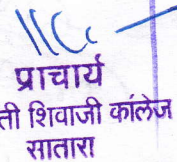 प्राचार्य
ती शिवाजी कॉलेज
सातारा